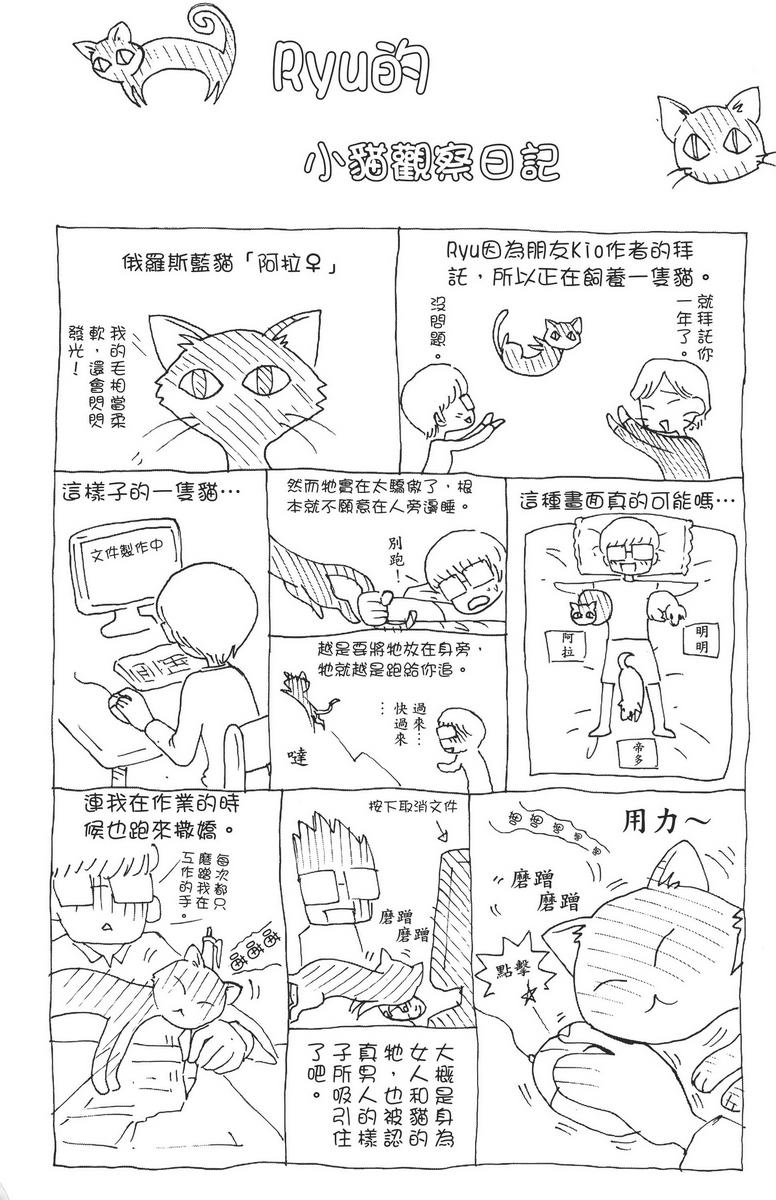 Ryu的
小貓觀察日記
Ryu因為朋友Kio作者的拜
託，所以正在飼養一隻貓。
就拜託你
一年了。
沒問題。
俄羅斯藍貓「阿拉♀」
我的毛相當柔
軟，還會閃閃
發光！
這種畫面真的可能嗎…
阿拉
明明
帝多
然而牠實在太驕傲了，根
本就不願意在人旁邊睡。
別跑！
越是要將牠放在身旁，
牠就越是跑給你追。
過來…
快過來
…
噠
這樣子的一隻貓…
文件製作中
用力～
磨蹭
磨蹭
點擊
按下取消文件
磨蹭
磨蹭
大概是身為
女人和貓的
牠，也被認
真男人的樣
子所吸引住
了吧。
連我在作業的時
候也跑來撒嬌。
每次都只
磨蹭我在
工作的手。
喵
喵
喵